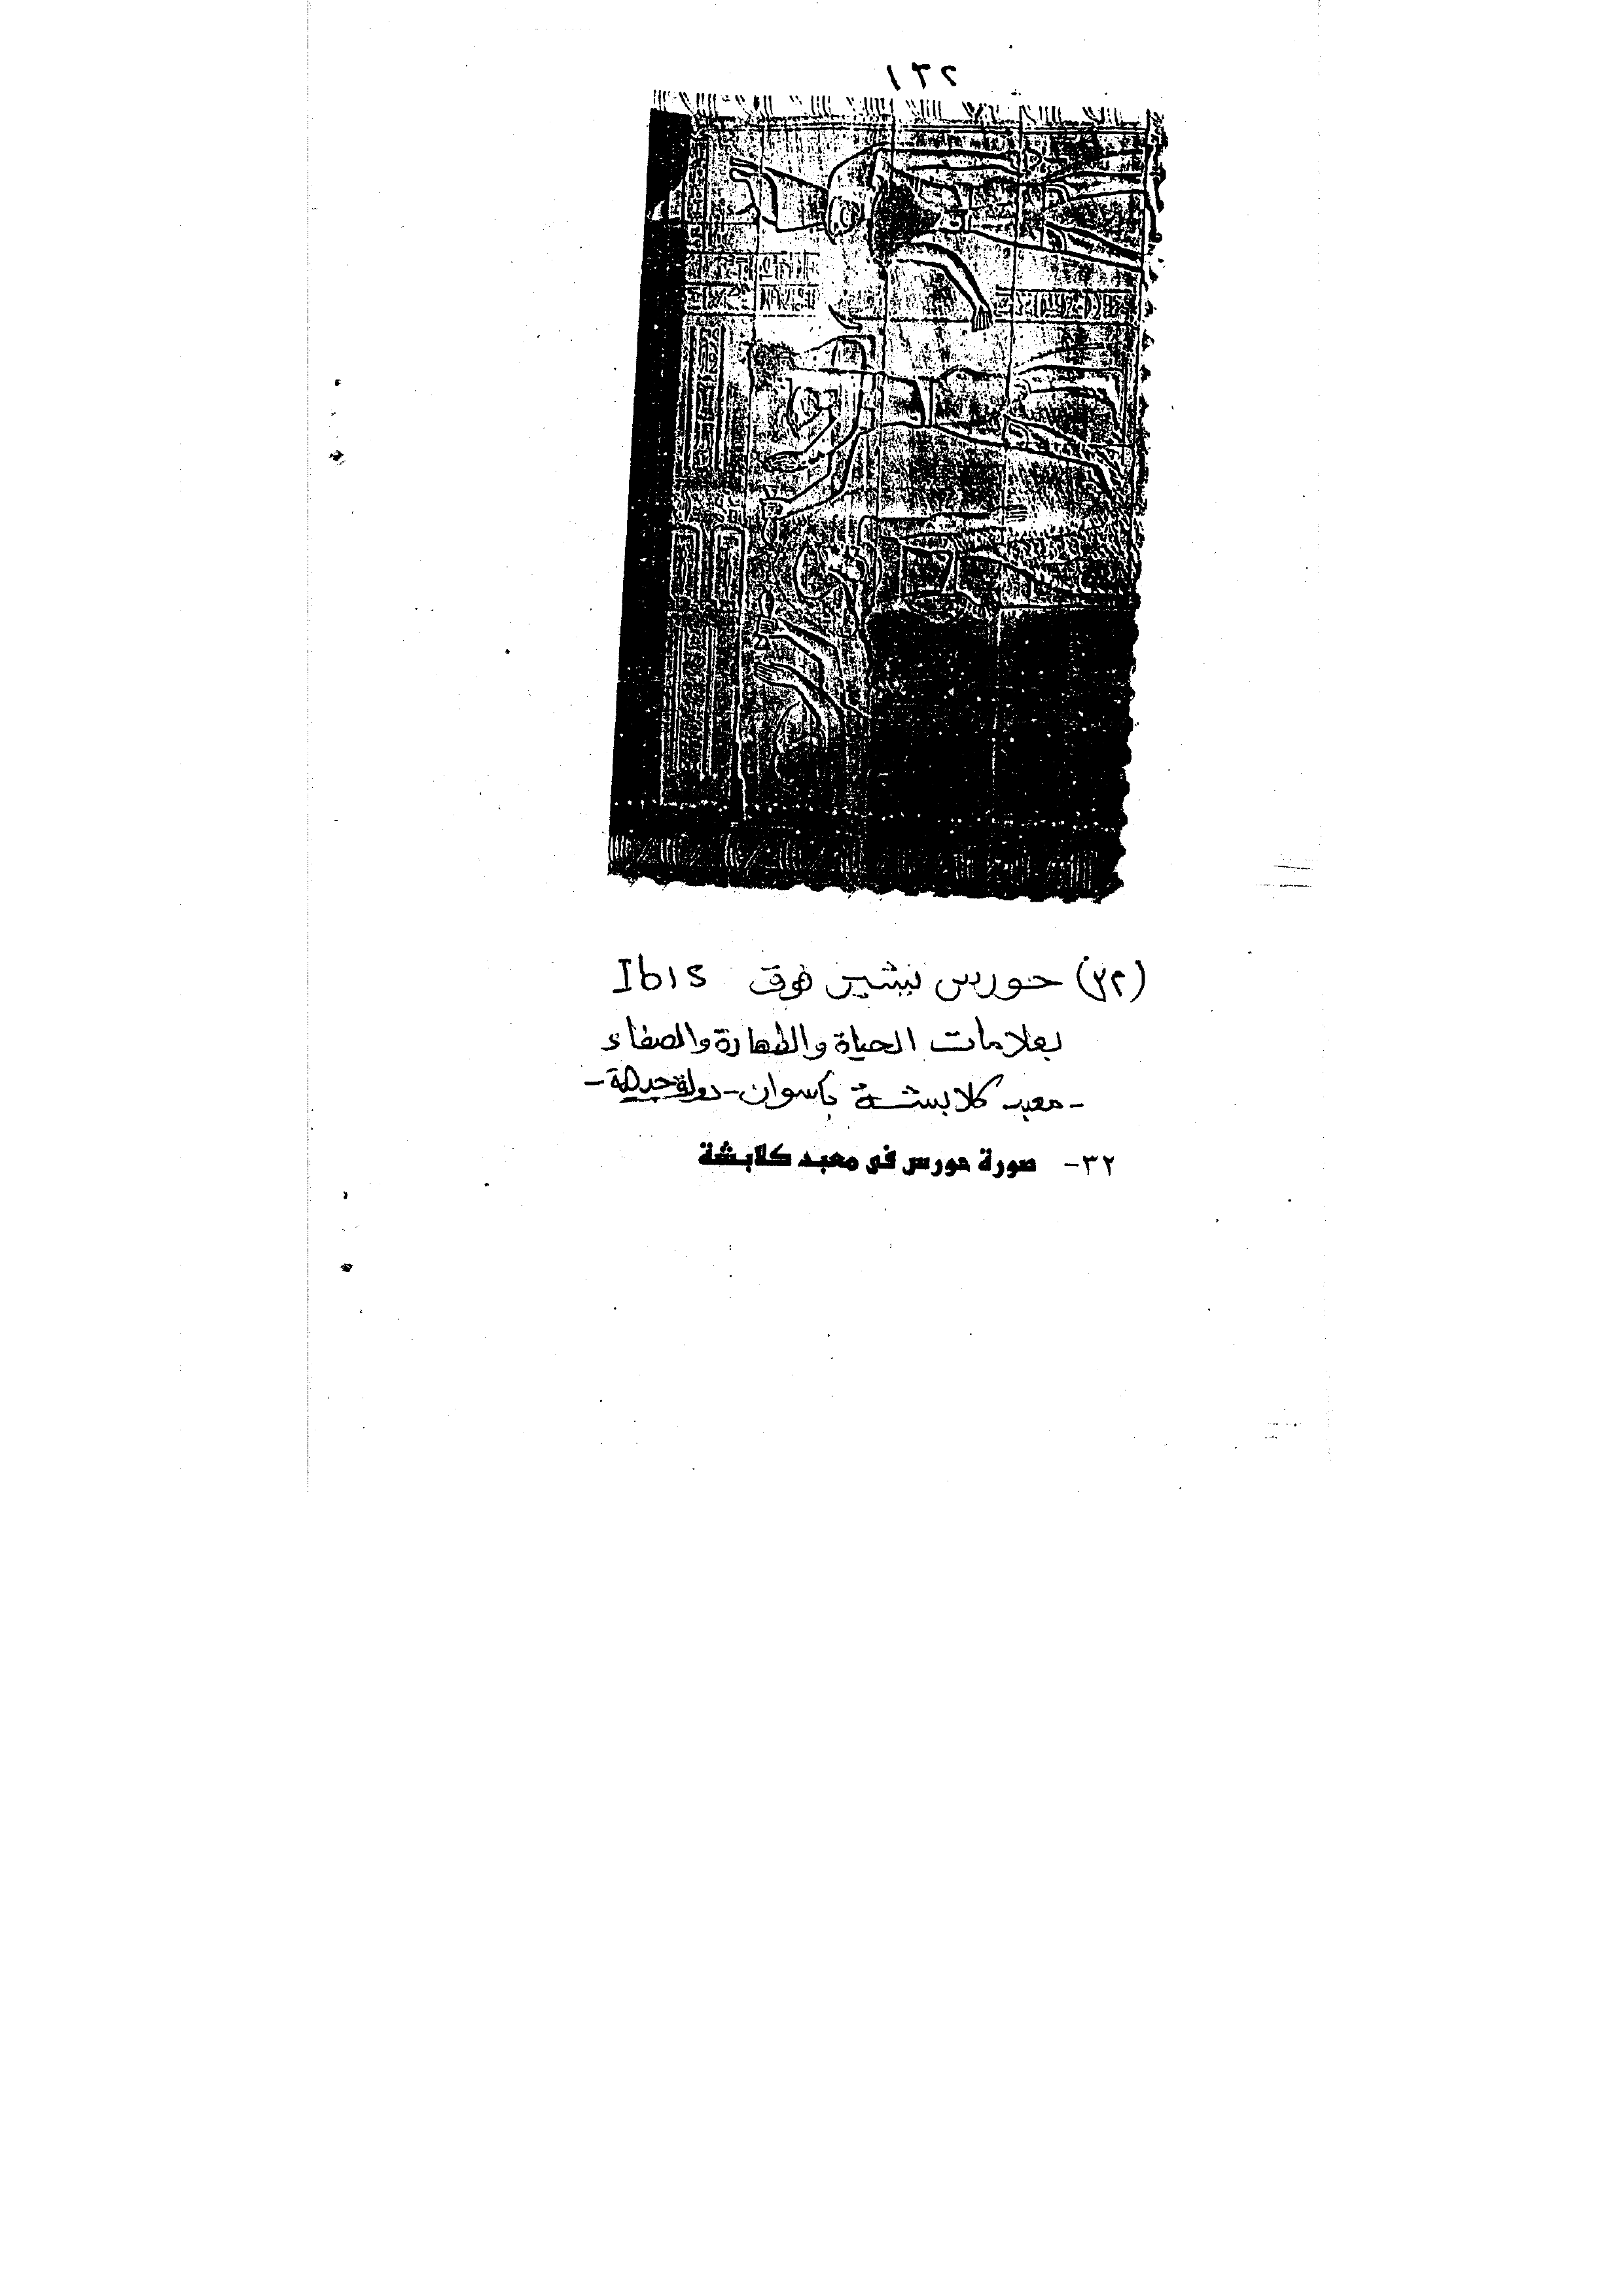 (٣٢) حورس يشير فوق Ibis
بعلامات الحياة والطهارة والصفاء
- معبد كلابشة بأسوان - دولة حديثة -
٣٢- صورة حورس فى معبد كلابشة